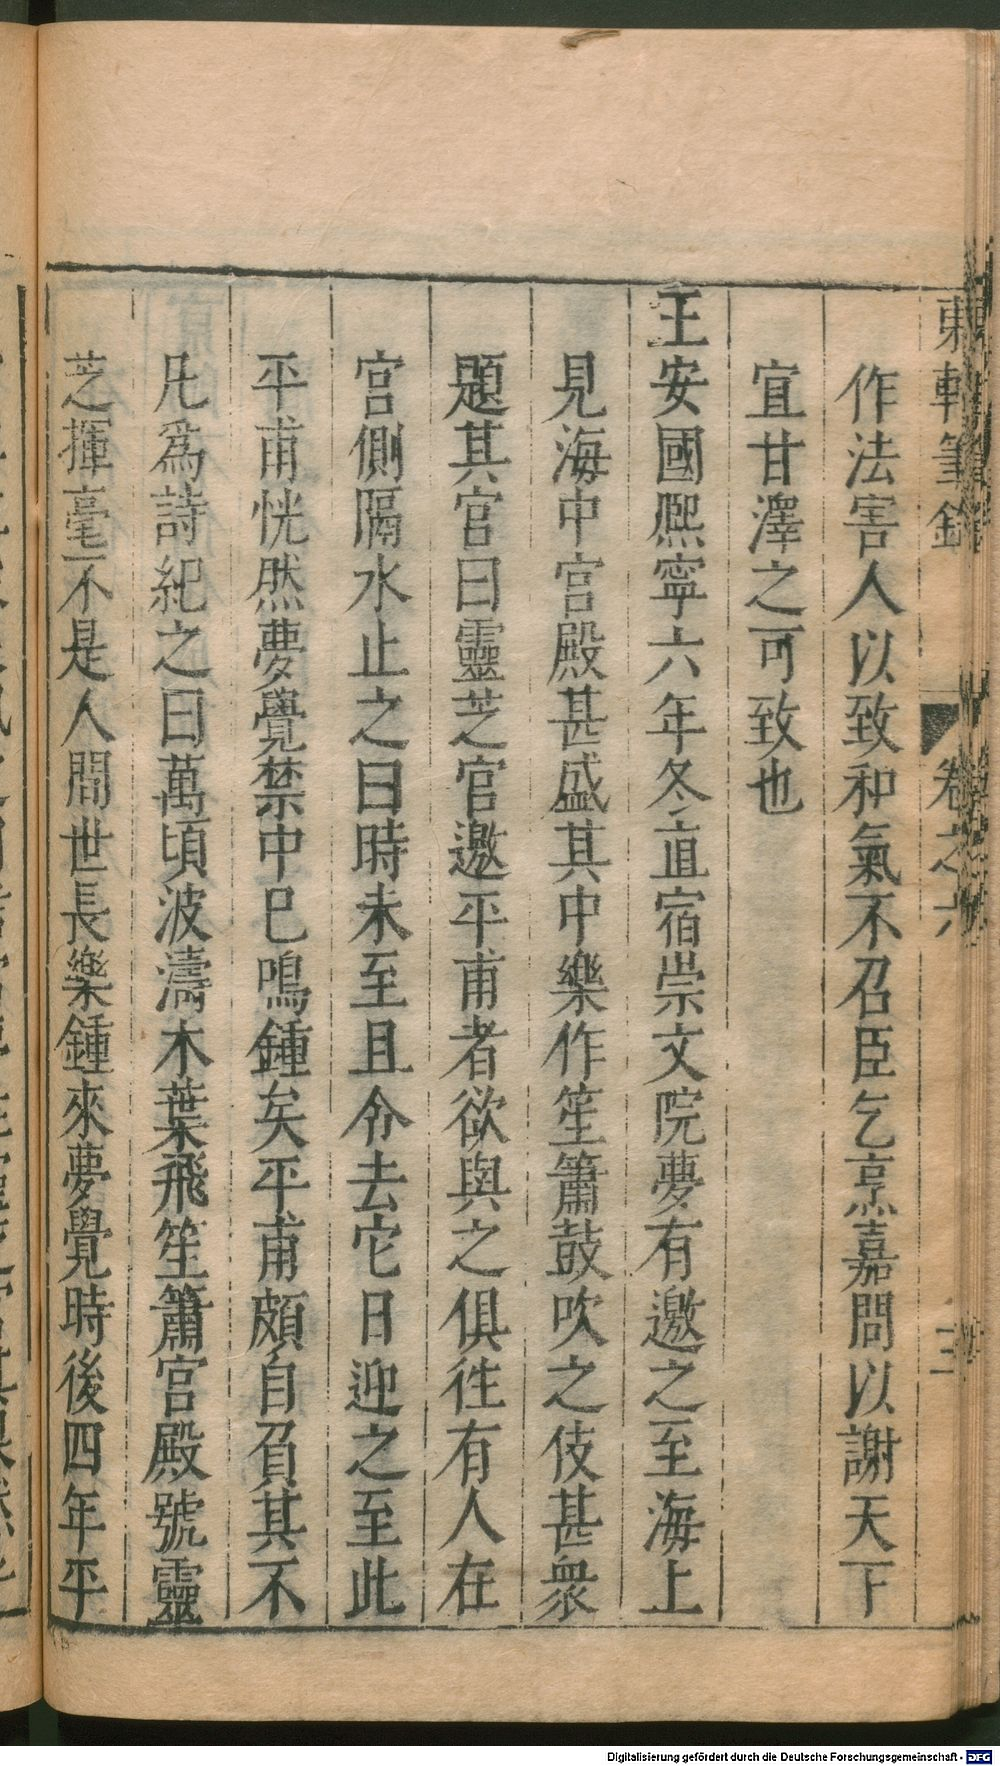 東軒筆錄 卷之六 三
作法害人以致和氣不召臣乞烹嘉問以謝天下
宜甘澤之可致也
王安國熈寧六年冬直宿崇文院夢有邀之至海上
見海中宫殿甚盛其中樂作笙簫鼓吹之伎甚衆
題其宫曰靈芝宫邀平甫者欲與之俱徃有人在
宫側隔水止之曰時未至且令去它日迎之至此
平甫恍然夢覺禁中巳鳴鍾矣平甫頗自負其不
凡爲詩紀之曰萬頃波濤木葉飛笙簫宫殿號靈
芝揮毫不是人間世長樂鍾來夢覺時後四年平
Digitalisierung gefördert durch die Deutsche Forschungsgemeinschaft - DFG